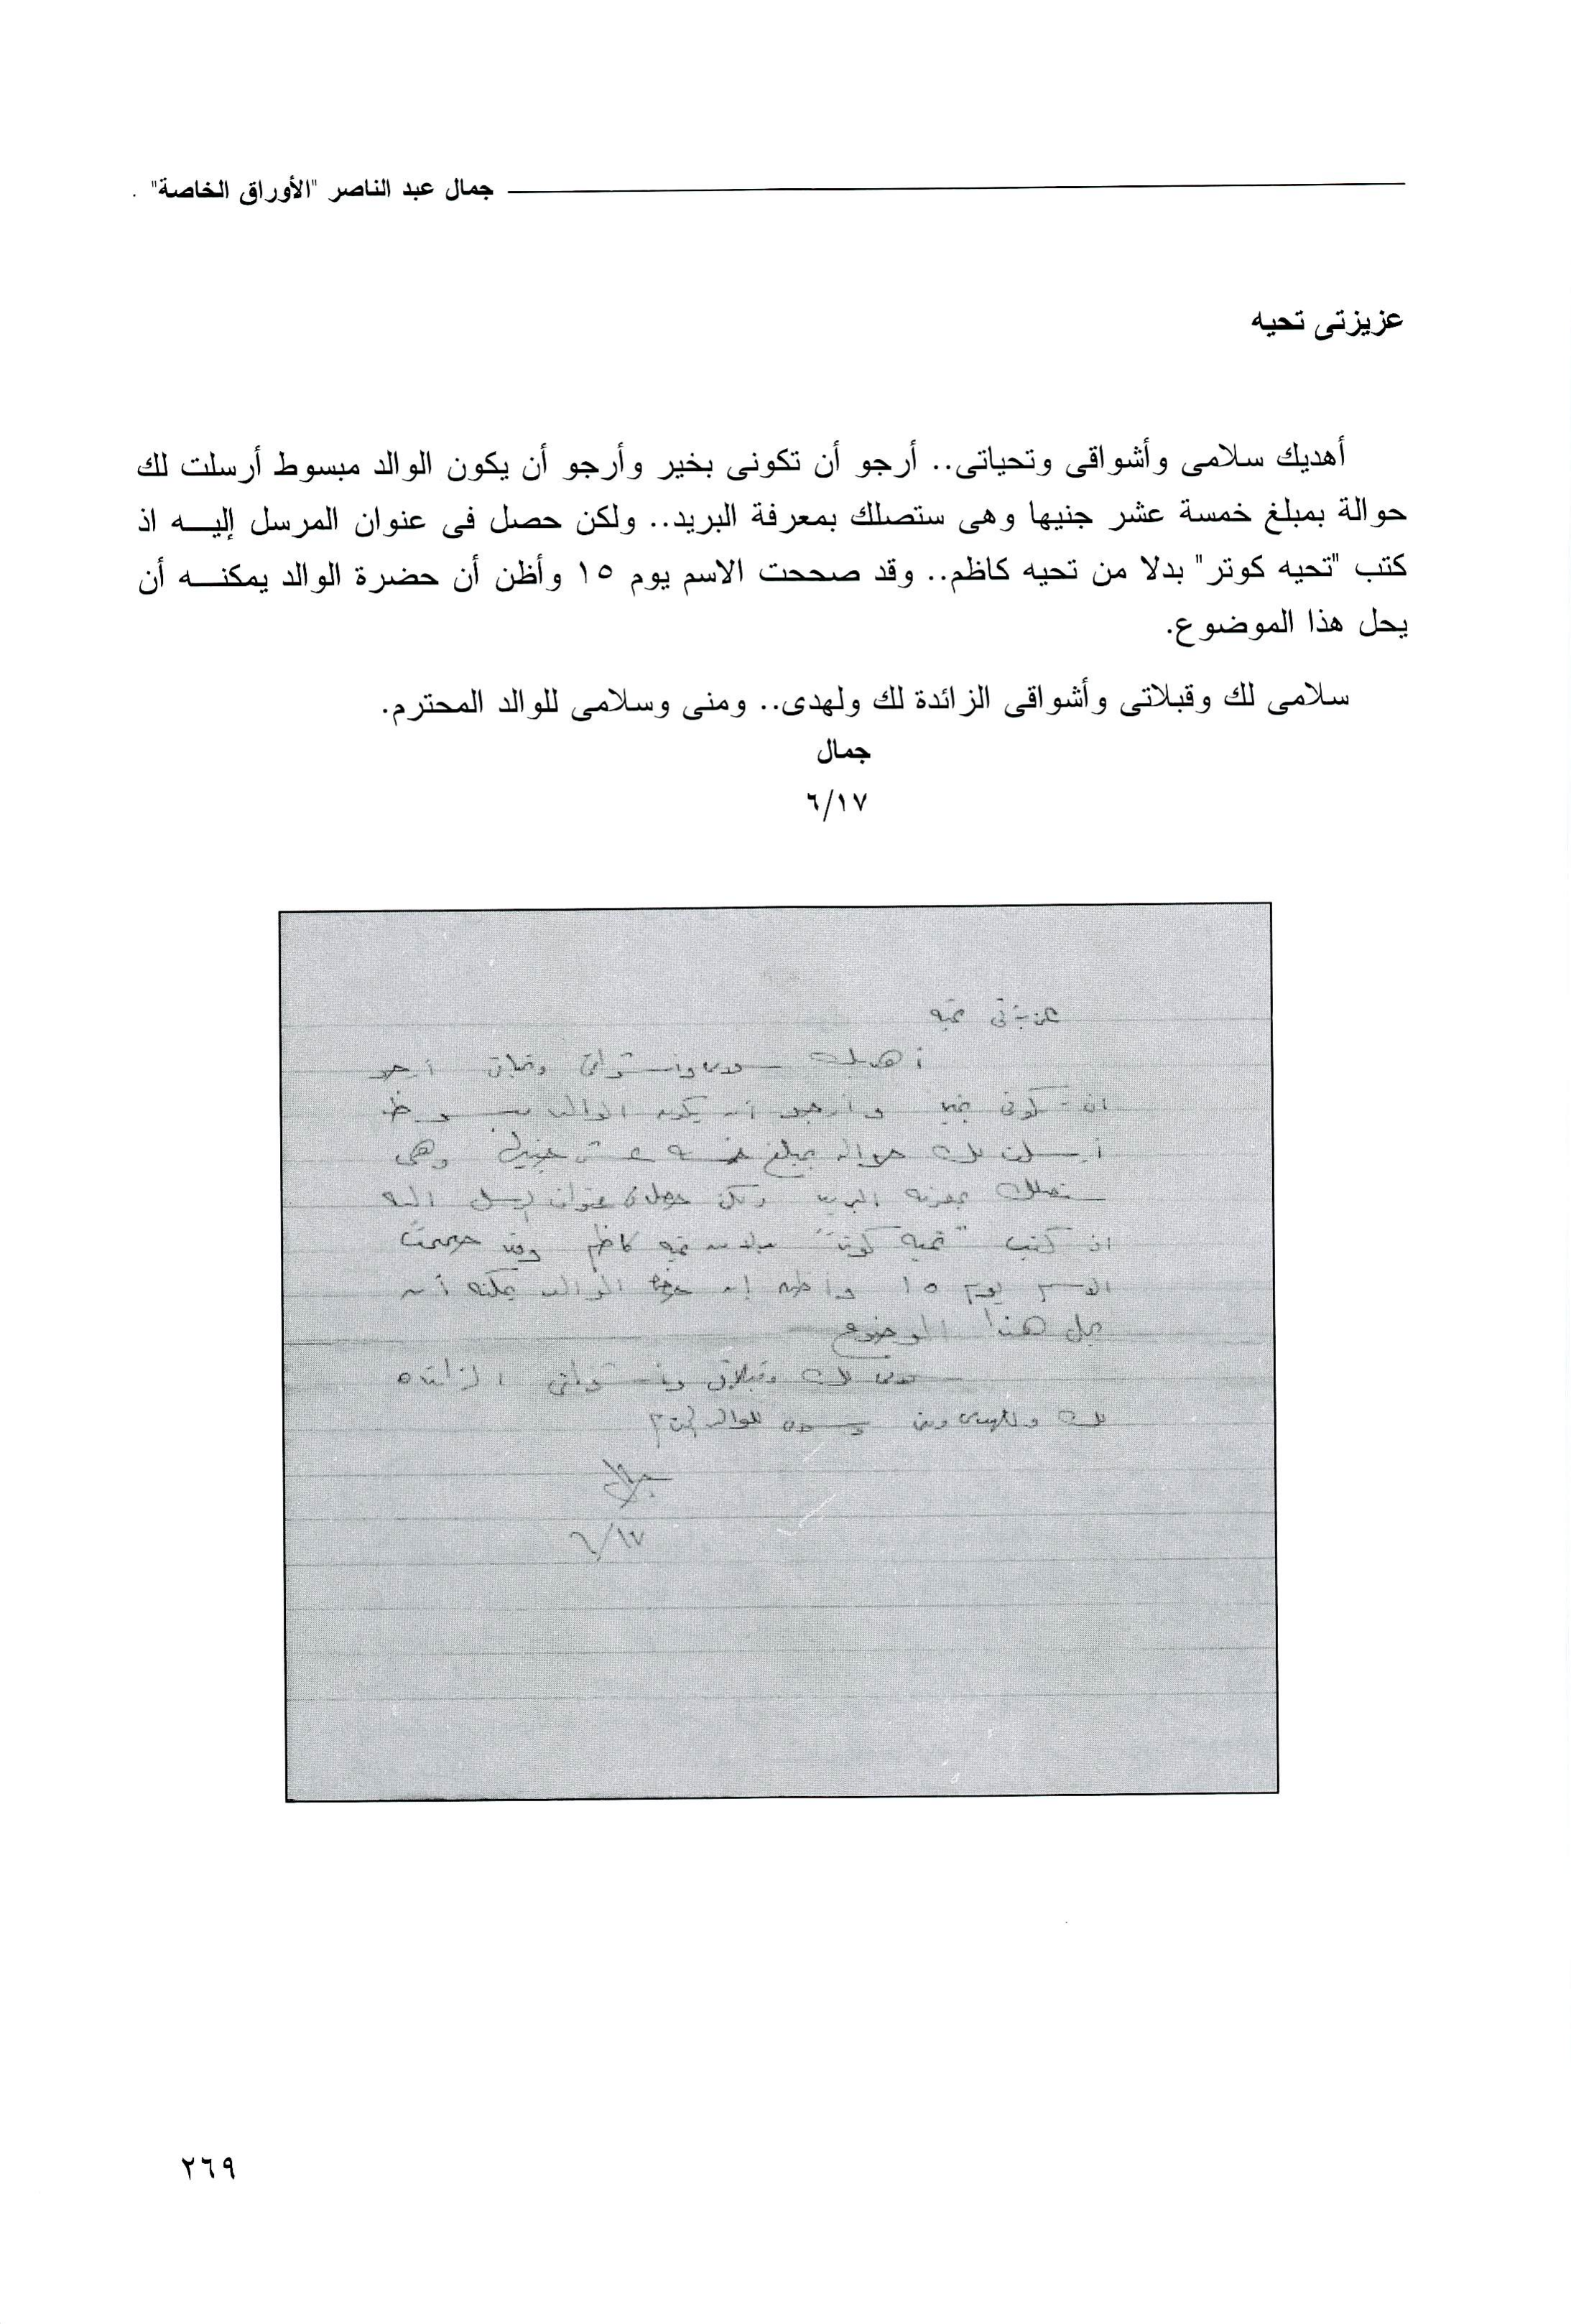 جمال عبد الناصر "الأوراق الخاصة" .
عزيزتى تحيه
أهديك سلامى وأشواقى وتحياتى.. أرجو أن تكونى بخير وأرجو أن يكون الوالد مبسوط أرسلت لك
حوالة بمبلغ خمسة عشر جنيها وهى ستصلك بمعرفة البريد.. ولكن حصل فى عنوان المرسل إليه اذ
كتب "تحيه كوتر" بدلا من تحيه كاظم.. وقد صححت الاسم يوم ١٥ وأظن أن حضرة الوالد يمكنه أن
يحل هذا الموضوع.
سلامى لك وقبلاتى وأشواقى الزائدة لك ولهدى.. ومنى وسلامى للوالد المحترم.
جمال
٦/١٧
عزيزتى تحيه
أهديك سلامى وأشواقى وتحياتى أرجو
ان تكونى بخير وأرجو أن يكون الوالد مبسوط
أرسلت لك حواله بمبلغ خمسه عشر جنيها وهى
ستصلك بمعرفه البريد ولكن حصل فى عنوان المرسل اليه
اذ كتب "تحيه كوتر" بدلا من تحيه كاظم وقد صححت
الاسم يوم ١٥ وأظن إن حضرة الوالد يمكنه أن
يحل هذا الموضوع
سلامى لك وقبلاتى وأشواقى الزائده
لك ولهدى ومنى وسلامى للوالد المحترم
جمال
٦/١٧
٢٦٩